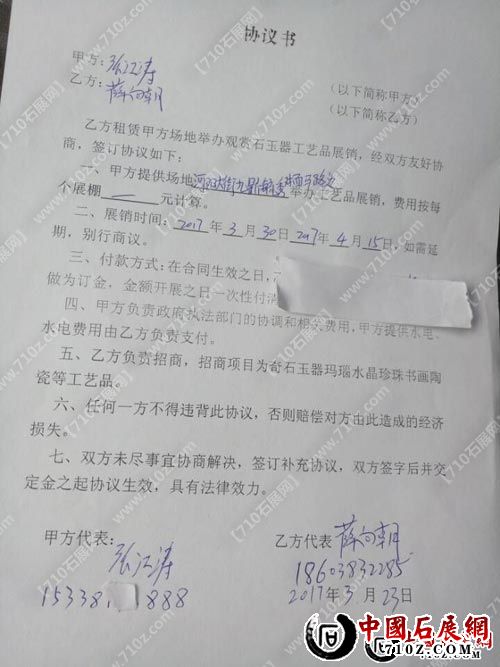 协议书
甲方：张江涛 （以下简称甲方）
乙方：薛向朝 （以下简称乙方）
乙方租赁甲方场地举办观赏石玉器工艺品展销，经双方友好协
商，签订协议如下：
一、甲方提供场地 举办工艺品展销，费用按每
个展棚 元计算。
二、展销时间：2017年3月30日2017年4月15日，如需延
期，别行商议。
三、付款方式：在合同生效之日，
做为订金，金额开展之日一次性付清
四、甲方负责政府执法部门的协调和相关费用，甲方提供水电、
水电费用由乙方负责支付。
五、乙方负责招商，招商项目为奇石玉器玛瑙水晶珍珠书画陶
瓷等工艺品。
六、任何一方不得违背此协议，否则赔偿对方由此造成的经济
损失。
七、双方未尽事宜协商解决，签订补充协议，双方签字后并交
定金之起协议生效，具有法律效力。
甲方代表： 乙方代表
张江涛 薛向朝
15338 888 18603832285
2017年3月23日
中國石展網
www.710z.com
【710石展网】
www.710z.com